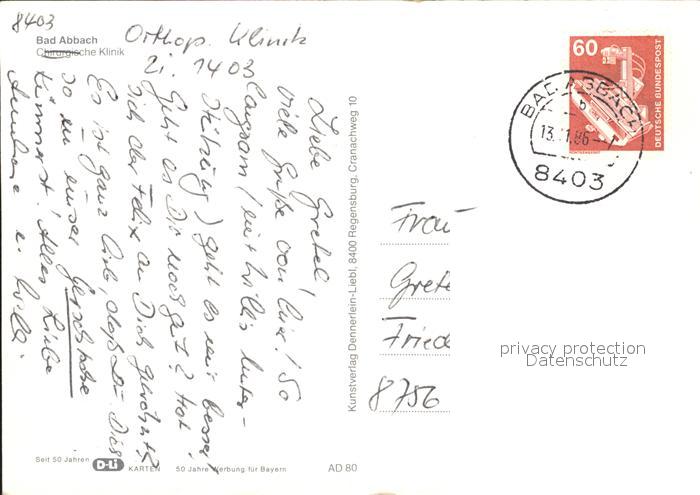 8403
Bad Abbach
Chirurgische Klinik
Orthop. Klinik
Zi. 1403
Liebe Gretel!
Viele Grüße von hier! So
langsam (mit Willis Unter-
stützung) geht es mir besser,
Geht es Dir noch gut? Hat
sich der Felix an Dich gewöhnt?
Es ist ganz lieb, daß Du Dich
so um unser
kümmerst! Alles Liebe
u. Willi
Kunstverlag Dennerlein-Liebl, 8400 Regensburg, Cranachweg 10
60
DEUTSCHE BUNDESPOST
BAD ABBACH
b
13.11.86
8403
Frau
Grete
Fried
8756
privacy protection
Datenschutz
Seit 50 Jahren
D-Li
KARTEN
50 Jahre Werbung für Bayern
AD 80